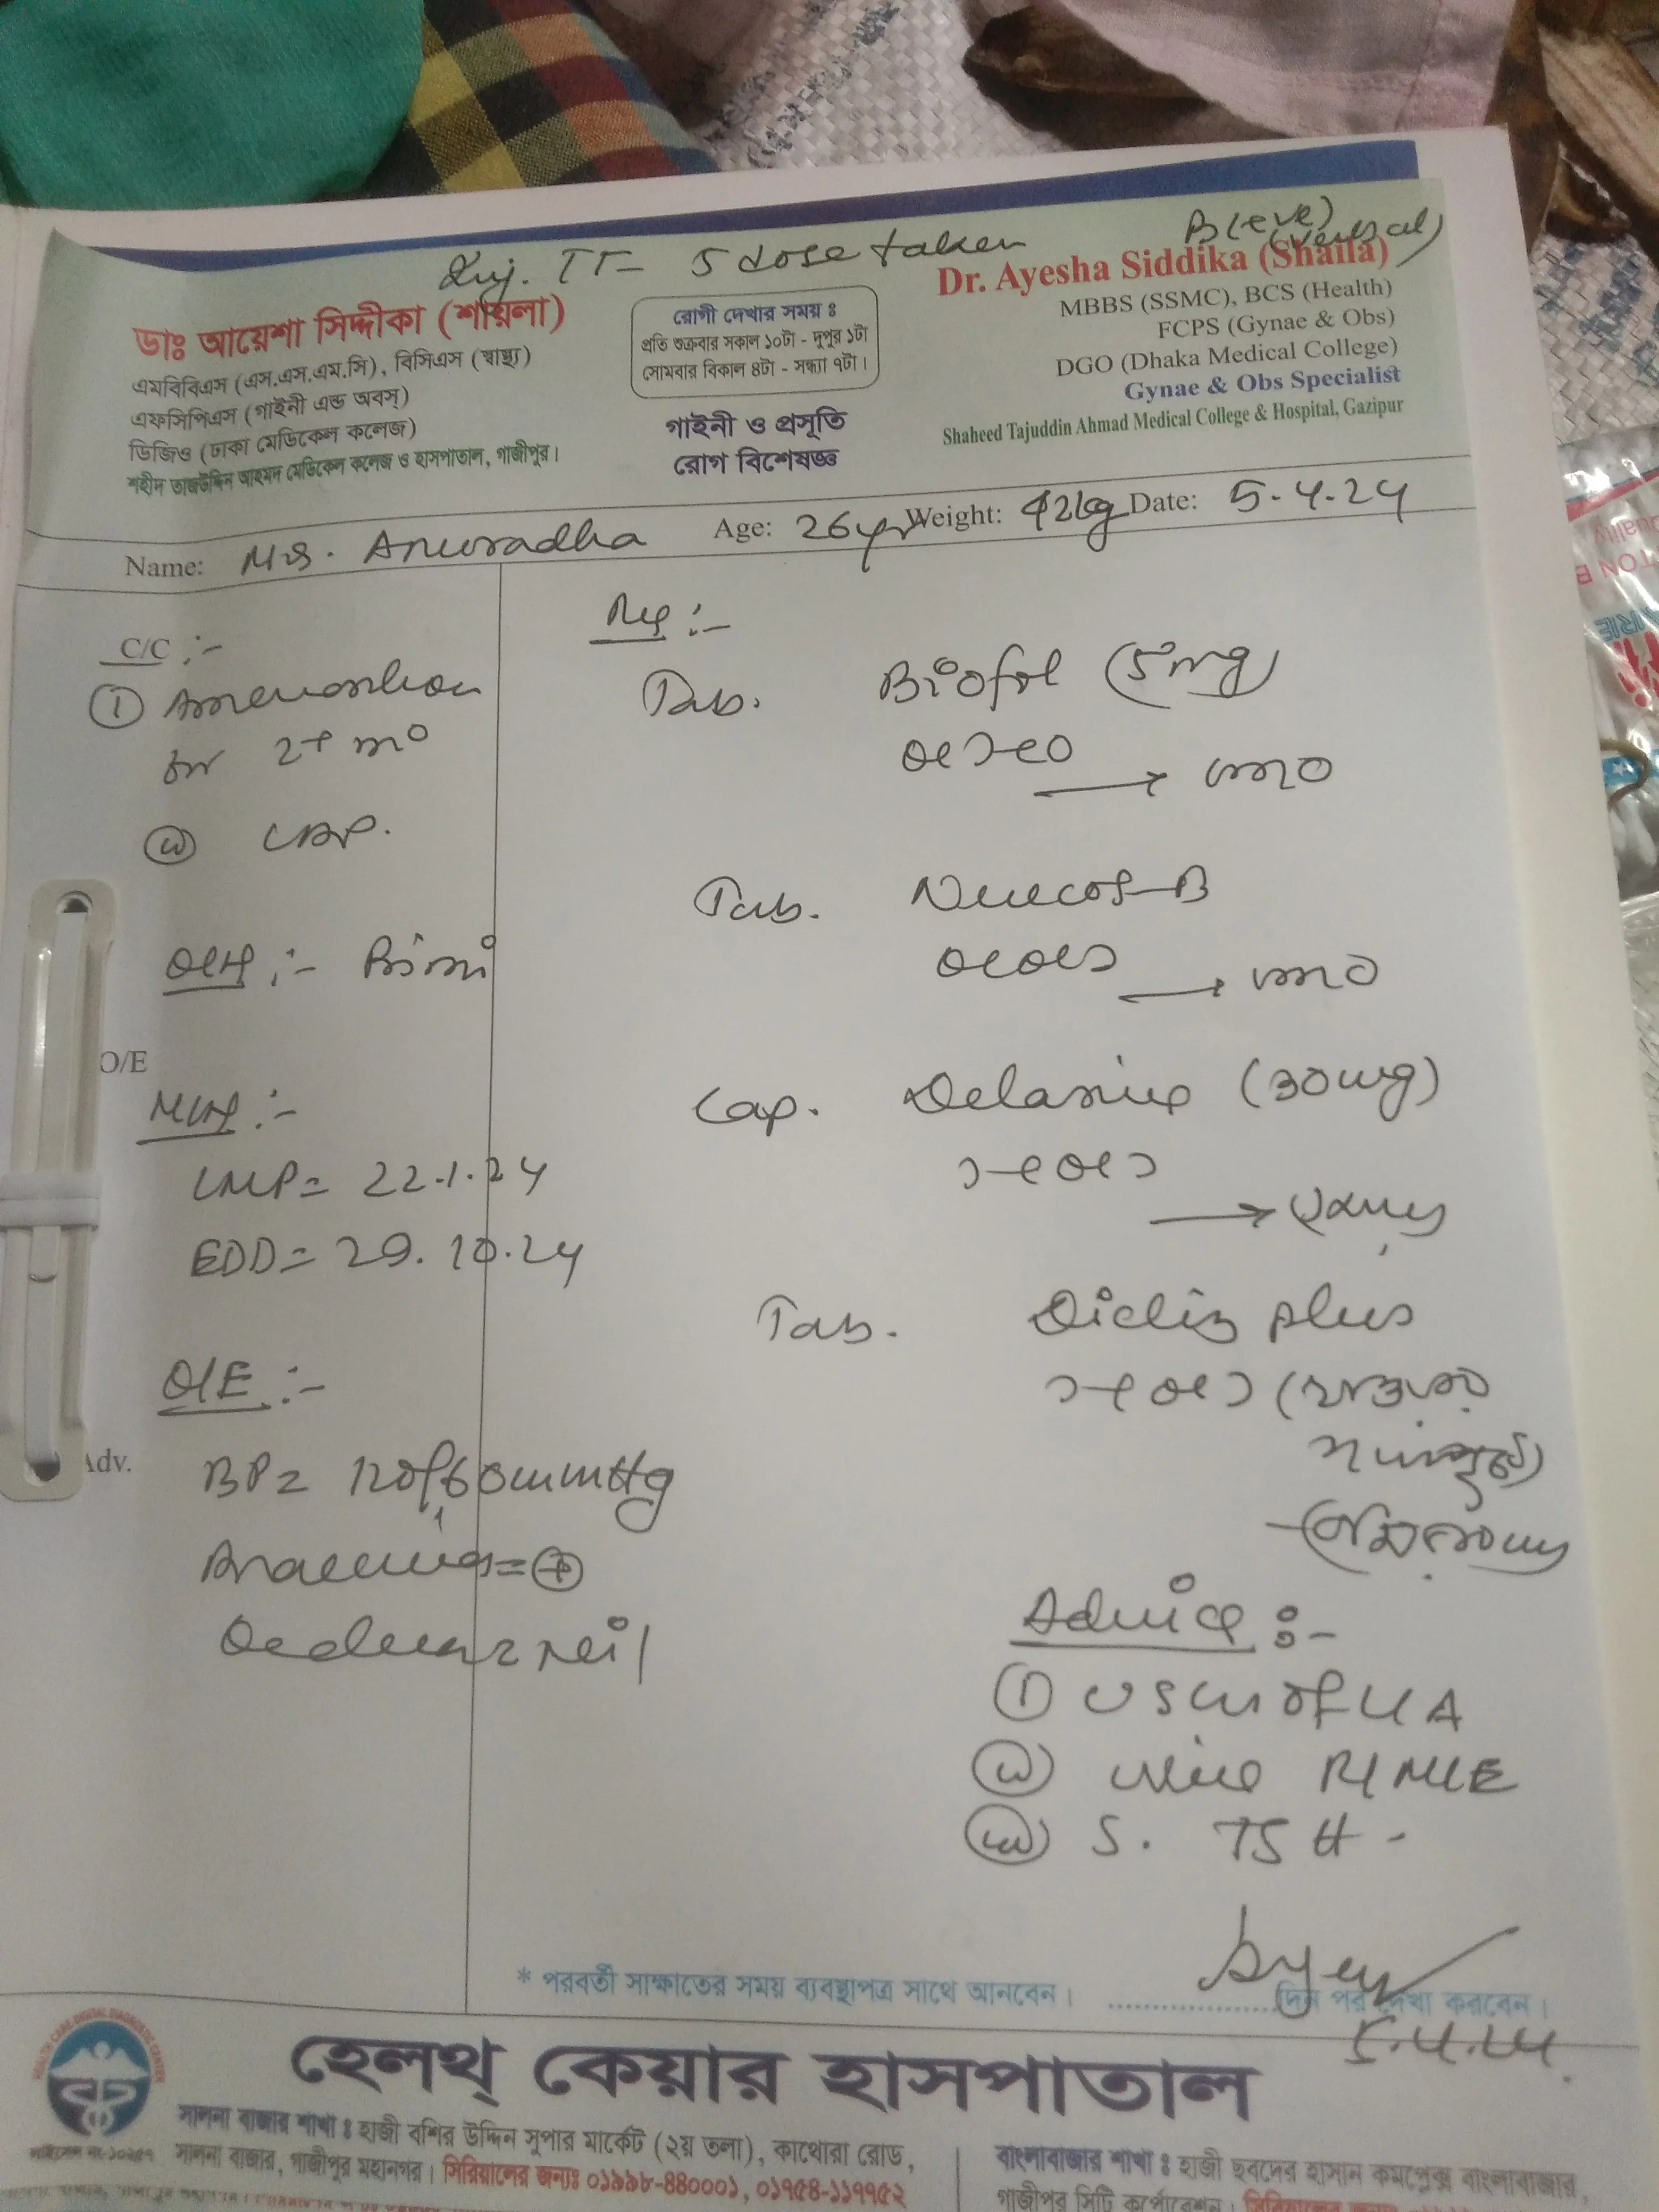 Inj. TT- 5 dose taken
B(+ve)
ডাঃ আয়েশা সিদ্দীকা (শায়লা)
এমবিবিএস (এস.এস.এম.সি), বিসিএস (স্বাস্থ্য)
এফসিপিএস (গাইনী এন্ড অবস্)
ডিজিও (ঢাকা মেডিকেল কলেজ)
শহীদ তাজউদ্দিন আহমদ মেডিকেল কলেজ ও হাসপাতাল, গাজীপুর।
রোগী দেখার সময় ঃ
প্রতি শুক্রবার সকাল ১০টা - দুপুর ১টা
সোমবার বিকাল ৪টা - সন্ধ্যা ৭টা।
গাইনী ও প্রসূতি
রোগ বিশেষজ্ঞ
Dr. Ayesha Siddika (Shaila)
MBBS (SSMC), BCS (Health)
FCPS (Gynae & Obs)
DGO (Dhaka Medical College)
Gynae & Obs Specialist
Shaheed Tajuddin Ahmad Medical College & Hospital, Gazipur
Name: Mrs. Anuradha Age: 26yr Weight: 42kg Date: 5.4.24
C/C :-
① Amenorrhoea
for 2+ mo
② LAP.
O/H :- Primi
O/E
M/H :-
LMP= 22.1.24
EDD= 29.10.24
O/E :-
Adv.
BP= 120/60mmHg
Anaemia= +
Oedema= nil
Rx :-
Tab. Biofol (5mg)
০+১+০
→
Tab. Neucos-B
০+০+১
→
Cap. (30mg)
১+০+১
→
Tab. plus
১+০+১
Advice :-
① USG of L/A
② Urine R/M/E
③ S. TSH -
5.4.24.
* পরবর্তী সাক্ষাতের সময় ব্যবস্থাপত্র সাথে আনবেন। ..................... দিন পর দেখা করবেন।
হেলথ্ কেয়ার হাসপাতাল
সালনা বাজার শাখা ঃ হাজী বশির উদ্দিন সুপার মার্কেট (২য় তলা), কাথোরা রোড,
সালনা বাজার, গাজীপুর মহানগর। সিরিয়ালের জন্যঃ ০১৯৯৮-৪৪০০০১, ০১৭৫৪-১১৭৭৫২
বাংলাবাজার শাখা ঃ হাজী ছবদের হাসান কমপ্লেক্স বাংলাবাজার,
গাজীপুর সিটি কর্পোরেশন।